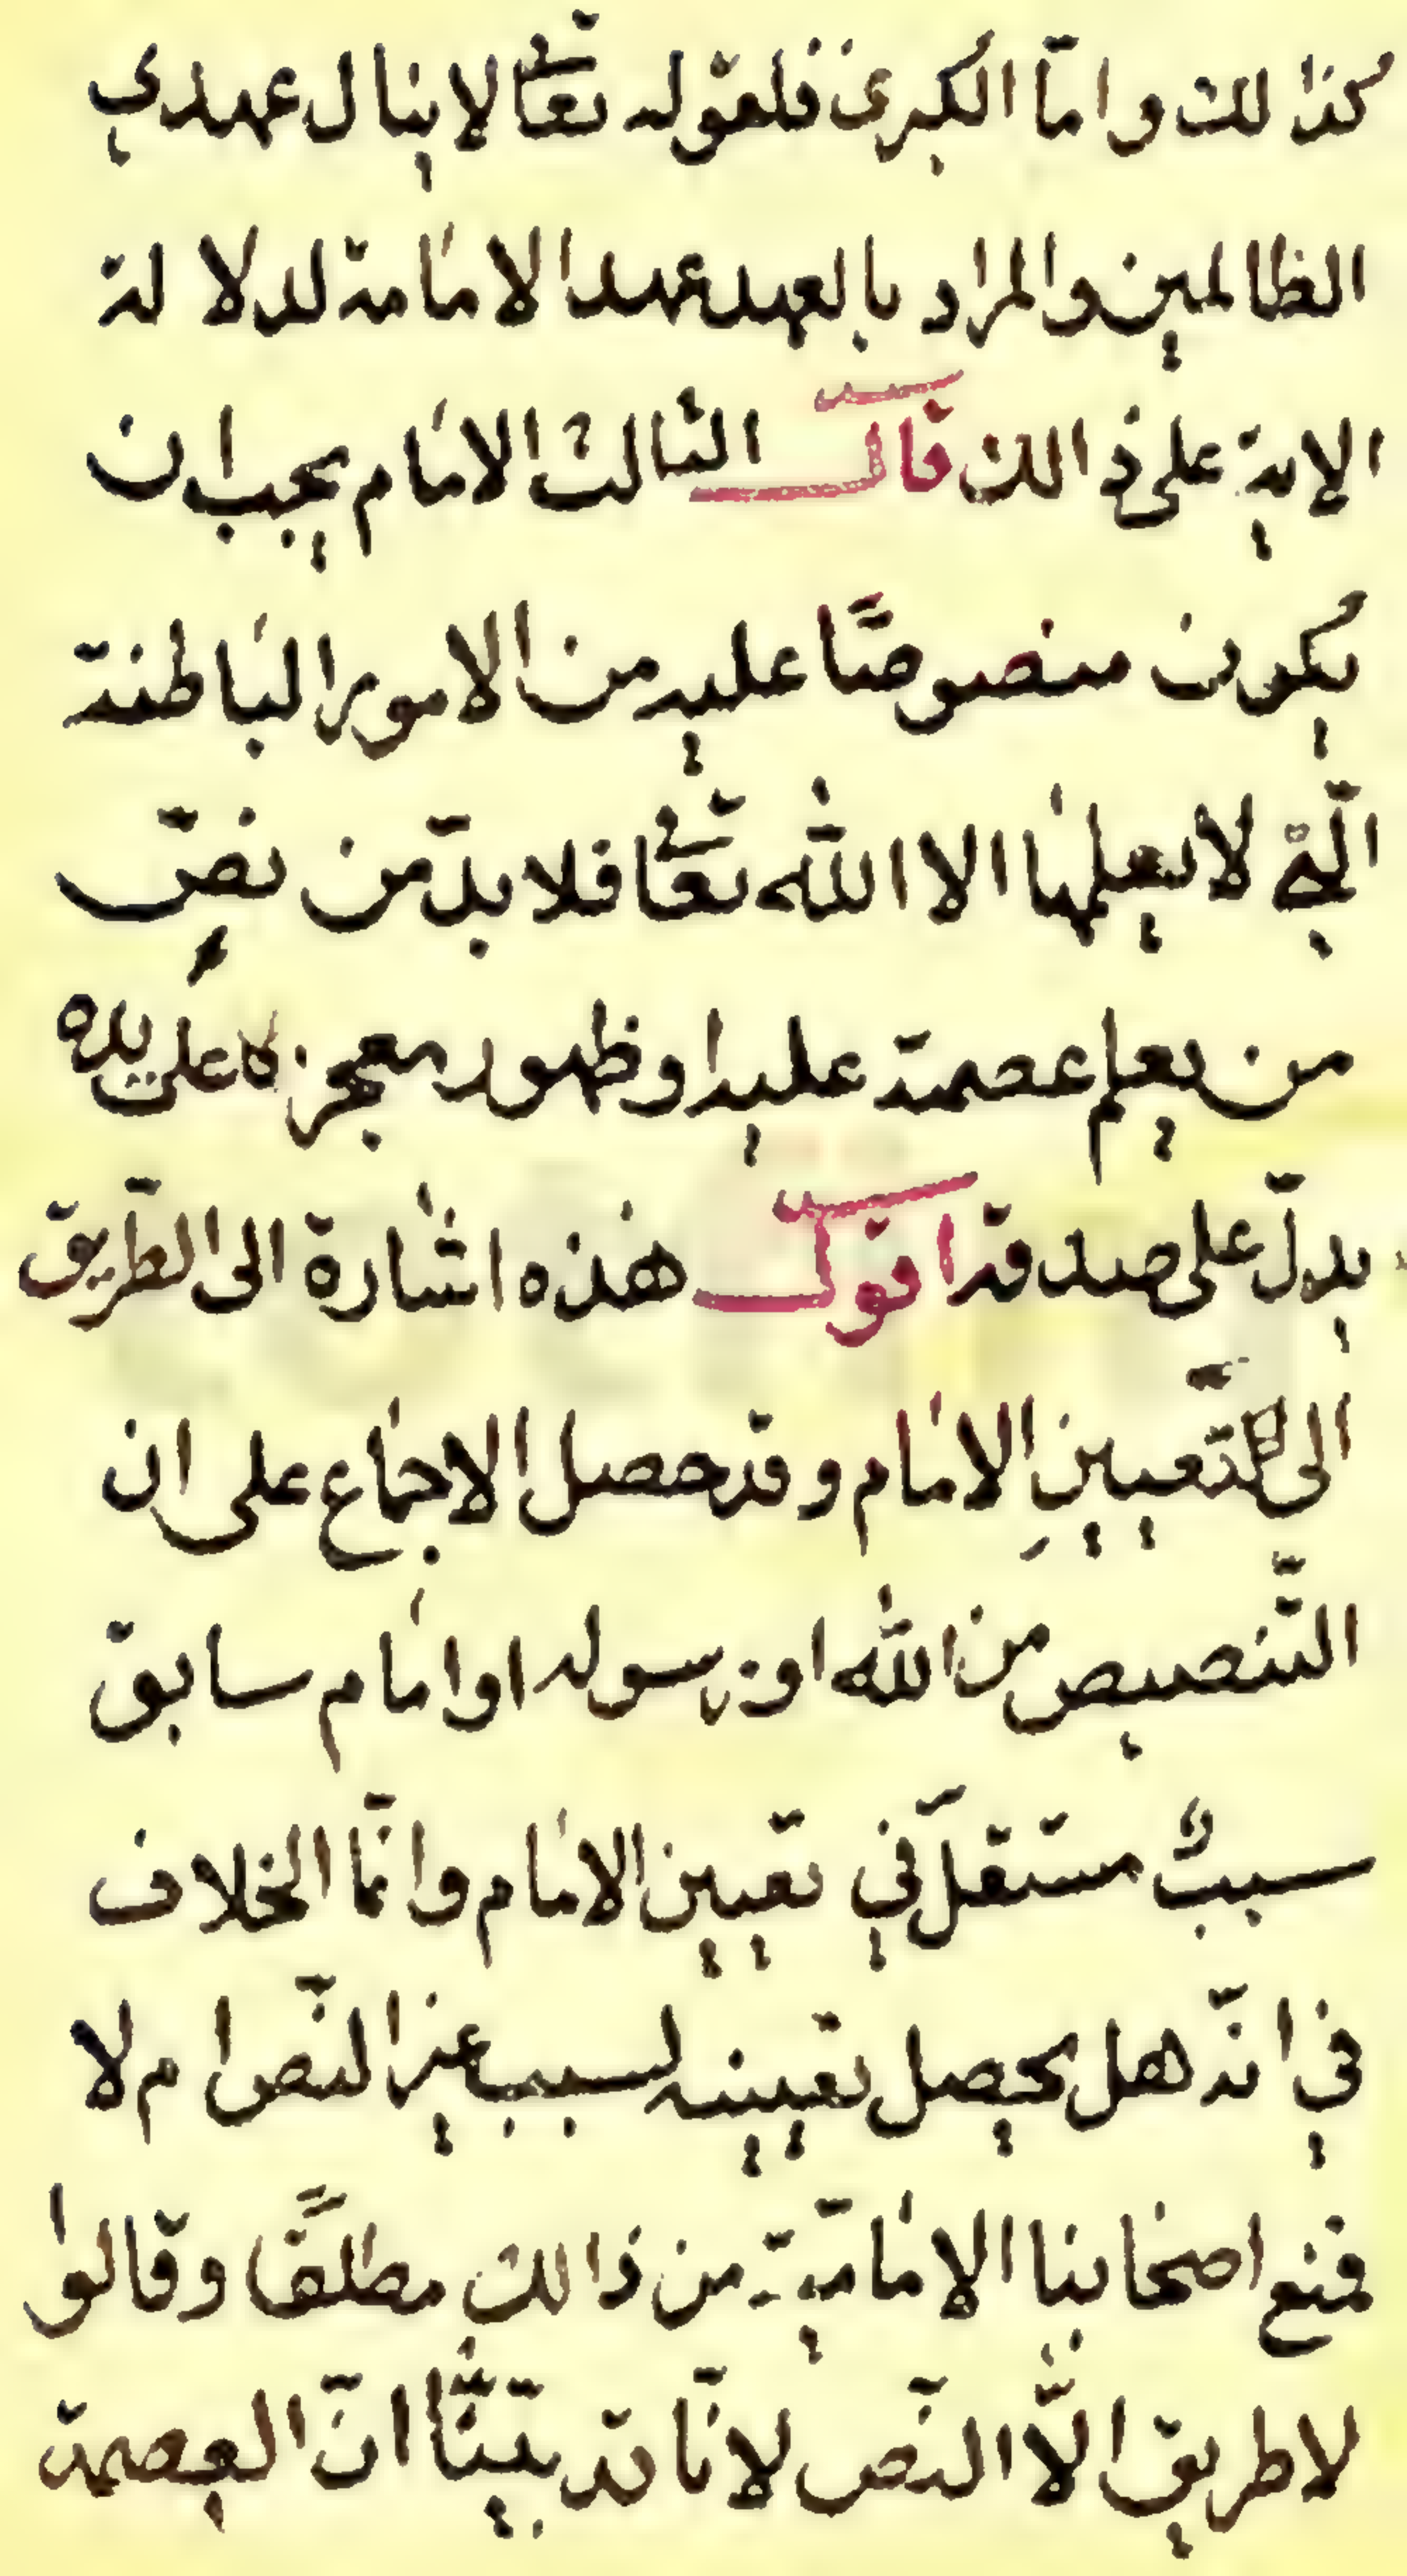 كذالك واما الكبرى فلقوله تعالى لاينال عهدي
الظالمين والمراد بالعهد عهد الامامة لدلالة
الاية على ذالك قال الثالث الامام يجب ان
يكون منصوصًا عليه من الامور الباطنة
الّتي لا يعلمها الا الله تعالى فلا بدّ من نصٍّ
من يعلم عصمة عليه او ظهور معجزة على يده
يدلّ على صدقه اقول هذه اشارة الى الطّريق
الى تّعيينِ الامام وقد حصل الاجماع على ان
التّنصيص من الله او رسوله او امام سابق
سببٌ مستقلّ في تعيين الامام وانّما الخلاف
في انّه هل يحصل تعيينه لسبب غير النّص ام لا
فمنع اصحابنا الامامية من ذالك مطلقًا وقالوا
لا طريق الّا النّص لانّا قد بيّنّا انّ العصمة